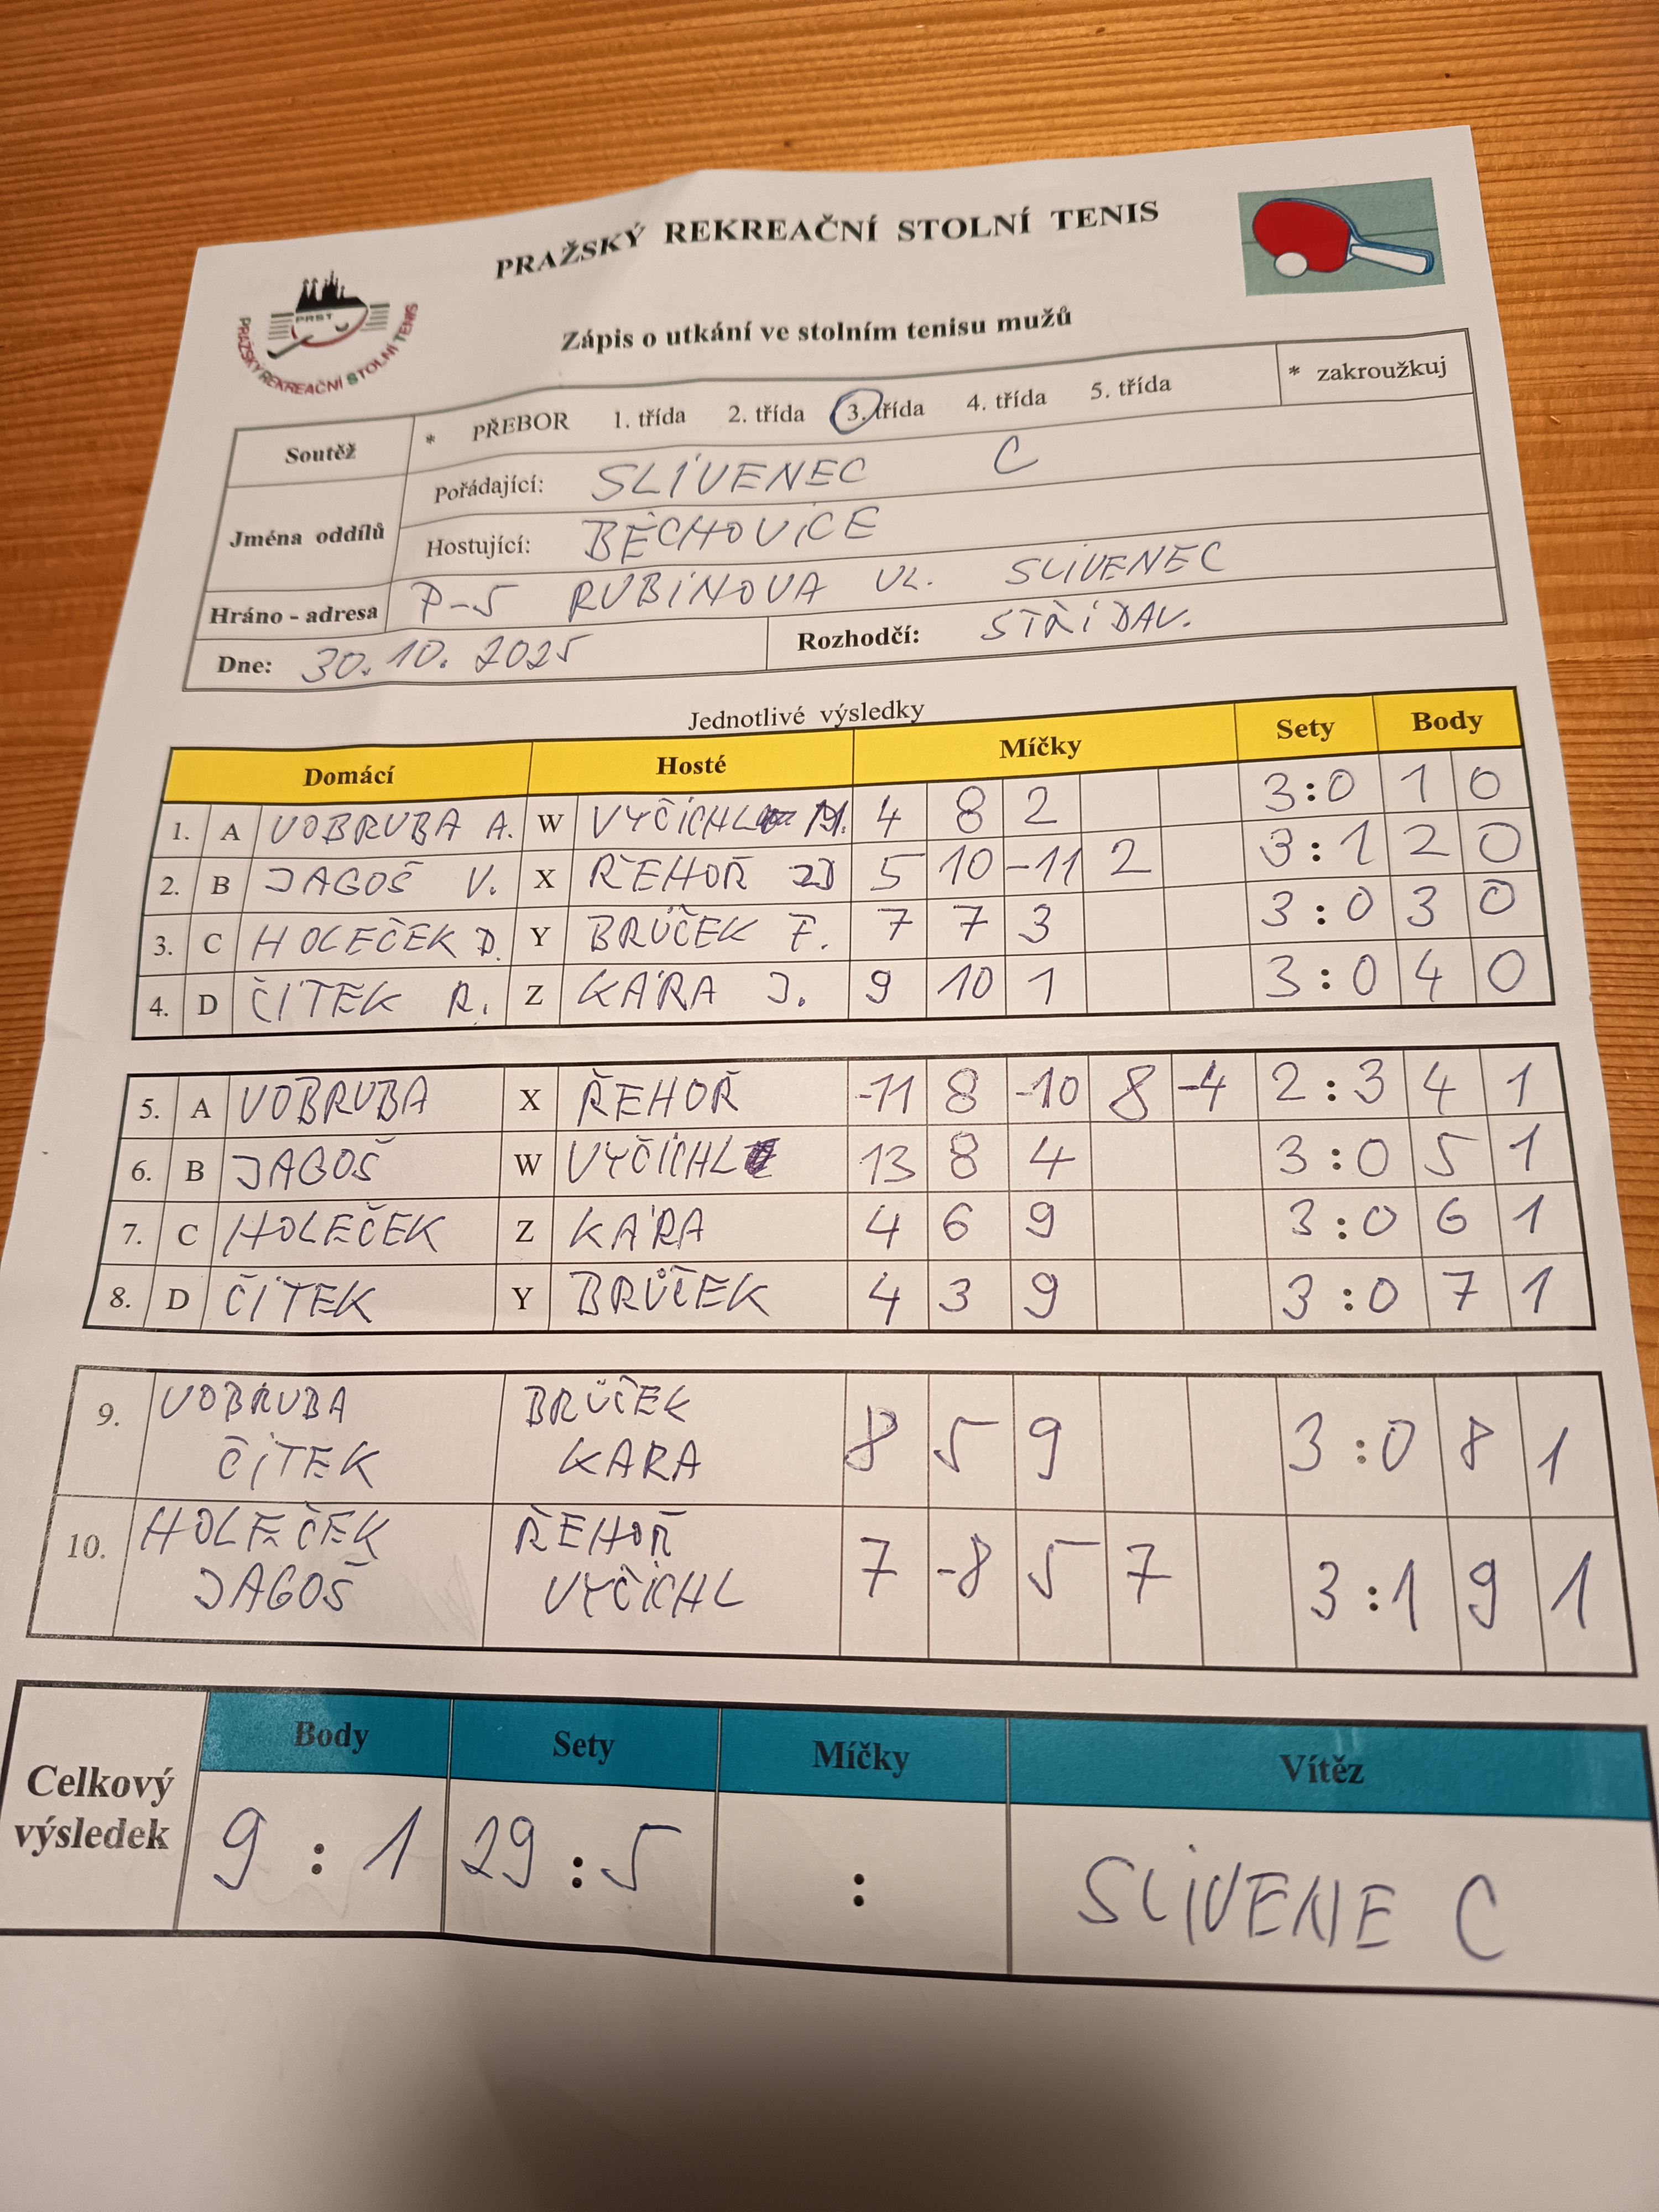 PRAŽSKÝ REKREAČNÍ STOLNÍ TENIS
PRST
PRAŽSKÝ REKREAČNÍ STOLNÍ TENIS
Zápis o utkání ve stolním tenisu mužů
Soutěž * PŘEBOR 1. třída 2. třída 3. třída 4. třída 5. třída * zakroužkuj
Jména oddílů
Pořádající: SLIVENEC C
Hostující: BĚCHOVICE
Hráno - adresa P-5 RUBÍNOVA UL. SLIVENEC
Dne: 30. 10. 2025 Rozhodčí: STŘÍDAV.
Jednotlivé výsledky
Domácí Hosté Míčky Sety Body
1. A VOBRUBA A. W VYČÍCHL M. 4 8 2 3:0 1 0
2. B JAGOŠ V. X ŘEHOŘ ZD 5 10 -11 2 3:1 2 0
3. C HOLEČEK D. Y BRŮČEK F. 7 7 3 3:0 3 0
4. D ČÍTEK R. Z KÁRA J. 9 10 1 3:0 4 0
5. A VOBRUBA X ŘEHOŘ -11 8 -10 8 -4 2:3 4 1
6. B JAGOŠ W VYČÍCHL 13 8 4 3:0 5 1
7. C HOLEČEK Z KÁRA 4 6 9 3:0 6 1
8. D ČÍTEK Y BRŮČEK 4 3 9 3:0 7 1
9. VOBRUBA BRŮČEK 8 5 9 3:0 8 1
ČÍTEK KARA
10. HOLEČEK ŘEHOŘ 7 -8 5 7 3:1 9 1
JAGOŠ VYČÍCHL
Celkový výsledek
Body Sety Míčky Vítěz
9 : 1 29 : 5 : SLIVENE C